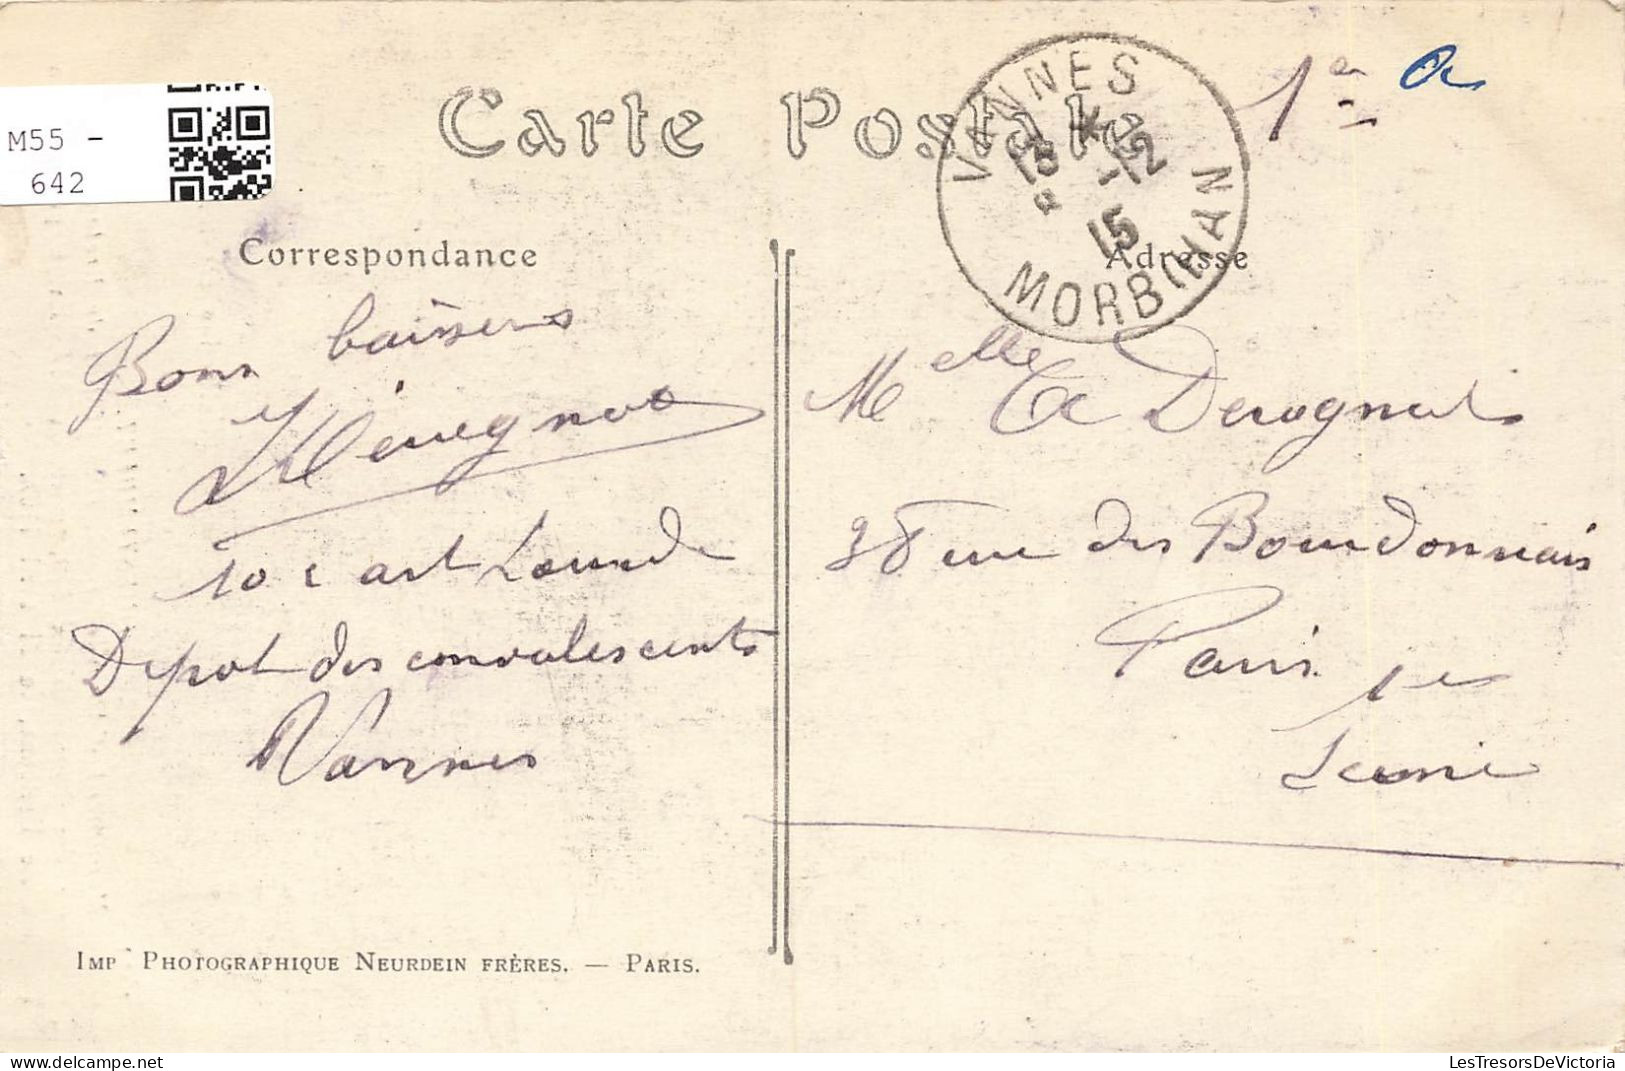 M55 -
642
Carte Postale
1er a
VANNES
18 * -12
15
MORBIHAN
Correspondance
Adresse
Bons baisers
10e art Lourde
Depot des convalescents
Vannes
Melle A Derognat
38 rue des Bourdonnais
Paris 1er
Seine
IMP PHOTOGRAPHIQUE NEURDEIN FRÈRES. — PARIS.
LesTresorsDeVictoria